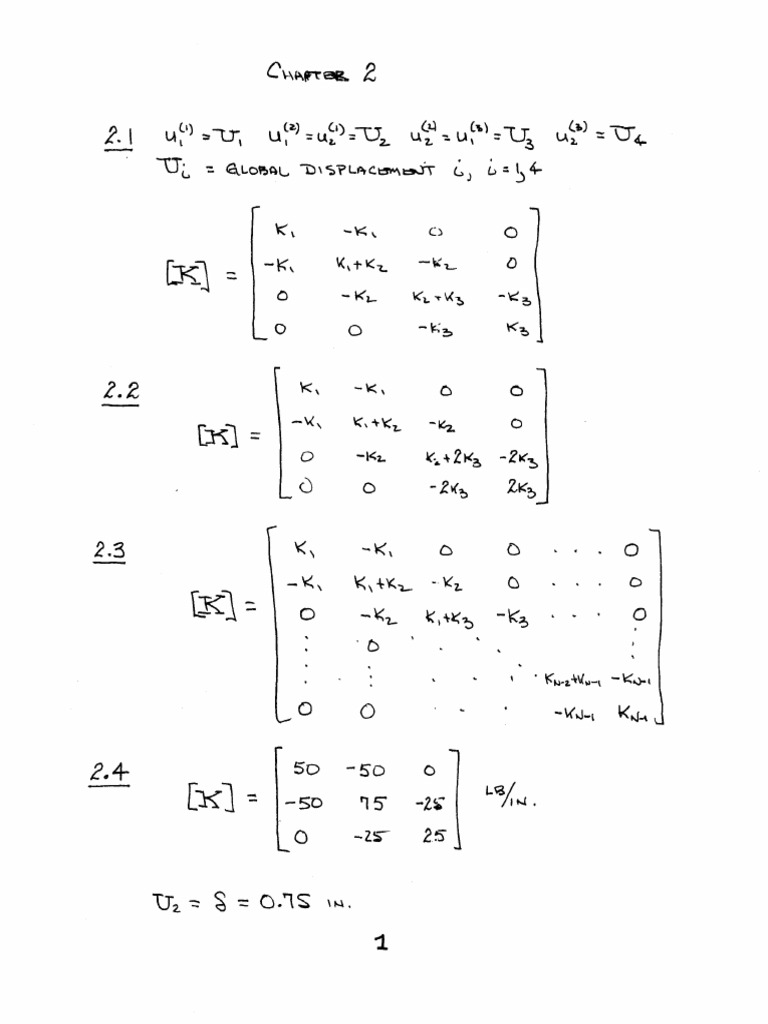 CHAPTER 2
2.1 u₁⁽¹⁾ = U₁ u₁⁽²⁾ = u₂⁽¹⁾ = U₂ u₂⁽²⁾ = u₁⁽³⁾ = U₃ u₂⁽³⁾ = U₄
Uᵢ = GLOBAL DISPLACEMENT i, i = 1,4
K₁ -K₁ 0 0
-K₁ K₁+K₂ -K₂ 0
[K] =
0 -K₂ K₂+K₃ -K₃
0 0 -K₃ K₃
2.2 K₁ -K₁ 0 0
-K₁ K₁+K₂ -K₂ 0
[K] =
0 -K₂ K₂+2K₃ -2K₃
0 0 -2K₃ 2K₃
2.3 K₁ -K₁ 0 0 . . . 0
-K₁ K₁+K₂ -K₂ 0 . . . 0
[K] =
0 -K₂ K₁+K₃ -K₃ . . . 0
: 0 . . . . :
: : . . . . K_N-2+K_N-1 -K_N-1
0 0 . . -K_N-1 K_N-1
2.4 50 -50 0
[K] = -50 75 -25 LB/IN.
0 -25 25
U₂ = δ = 0.75 IN.
1